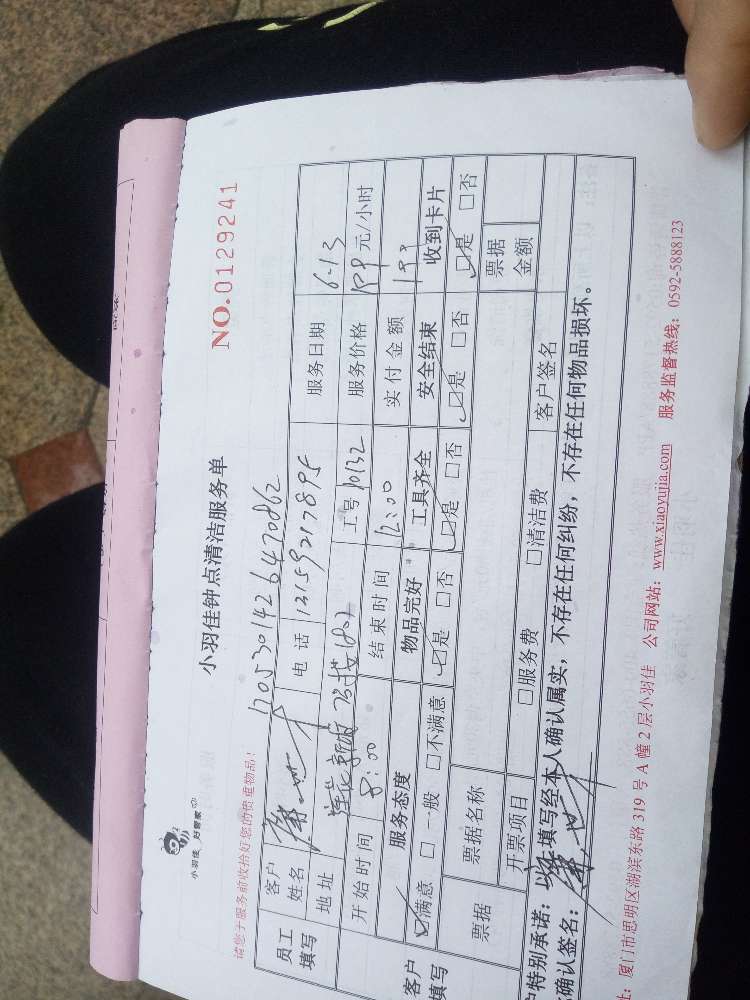 小羽佳 好管家
小羽佳钟点清洁服务单
请您于服务前收拾好您的贵重物品！
NO.0129241
1205301426470862
员工填写
客户姓名
电话
服务日期 6-13
地址
工号 10132
服务价格 元/小时
开始时间 8:00
结束时间 12:00
实付金额
客户填写
服务态度 物品完好 工具齐全 安全结束 收到卡片
☑满意 □一般 □不满意 ☑是 □否 ☑是 □否 ☑是 □否 ☑是 □否
票据
票据名称
票据金额
开票项目 □服务费 □清洁费 客户签名
户特别承诺：以上填写经本人确认属实，不存在任何纠纷，不存在任何物品损坏。
确认签名：
址：厦门市思明区湖滨东路 319 号 A 幢 2 层小羽佳 公司网站：www.xiaoyujia.com 服务监督热线：0592-5888123